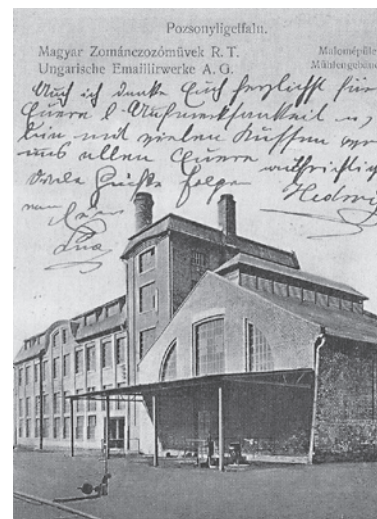 Pozsonyligetfalu.
Magyar Zománczozóművek R. T.
Ungarische Emaillirwerke A. G.
Malomépüle
Mühlengebäud
Auch ich danke Euch herzlichst für
Euere l. Aufmerksamkeit u.
bin mit vielen Küssen von
uns allen Euere aufrichtige
Viele Grüße folgen Hedwig
von